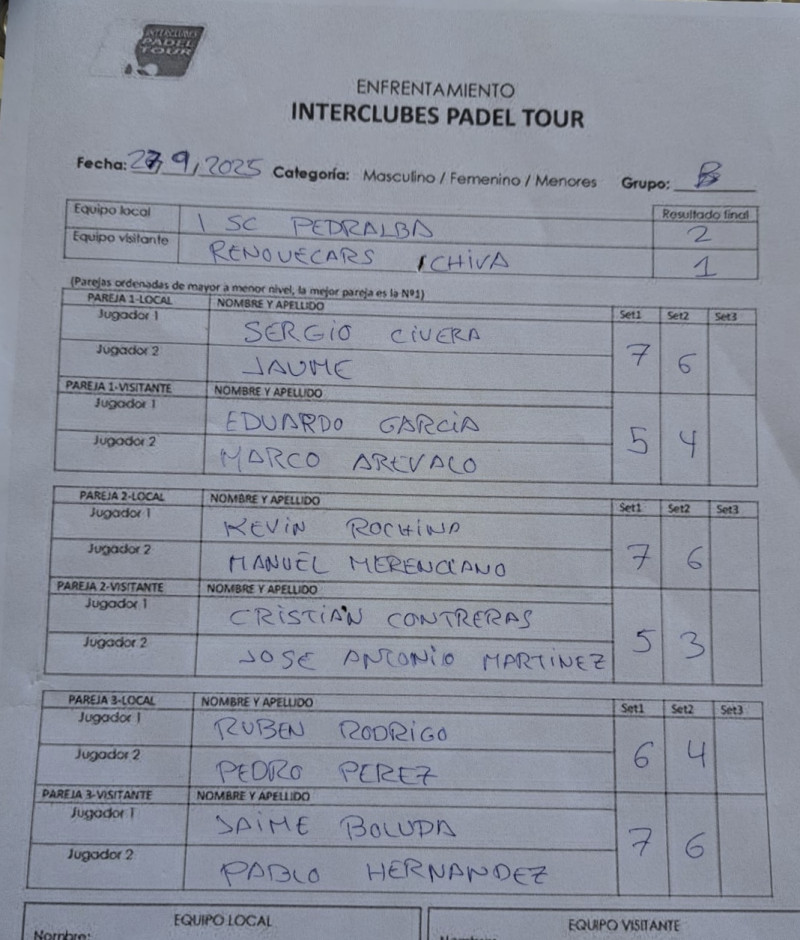 INTERCLUBES
PADEL
TOUR
ENFRENTAMIENTO
INTERCLUBES PADEL TOUR
Fecha: 27, 9, 2025 Categoría: Masculino / Femenino / Menores Grupo: B
Equipo local 1 SC PEDRALBA Resultado final 2
Equipo visitante RENOUECARS CHIVA 1
(Parejas ordenadas de mayor a menor nivel, la mejor pareja es la Nº1)
PAREJA 1-LOCAL NOMBRE Y APELLIDO Set1 Set2 Set3
Jugador 1 SERGIO CIVERA 7 6
Jugador 2 JAUME
PAREJA 1-VISITANTE NOMBRE Y APELLIDO
Jugador 1 EDUARDO GARCIA 5 4
Jugador 2 MARCO AREVALO
PAREJA 2-LOCAL NOMBRE Y APELLIDO Set1 Set2 Set3
Jugador 1 KEVIN ROCHINA 7 6
Jugador 2 MANUEL MERENCIANO
PAREJA 2-VISITANTE NOMBRE Y APELLIDO
Jugador 1 CRISTIAN CONTRERAS 5 3
Jugador 2 JOSE ANTONIO MARTINEZ
PAREJA 3-LOCAL NOMBRE Y APELLIDO Set1 Set2 Set3
Jugador 1 RUBEN RODRIGO 6 4
Jugador 2 PEDRO PEREZ
PAREJA 3-VISITANTE NOMBRE Y APELLIDO
Jugador 1 JAIME BOLUDA 7 6
Jugador 2 PABLO HERNANDEZ
EQUIPO LOCAL EQUIPO VISITANTE
Nombre: